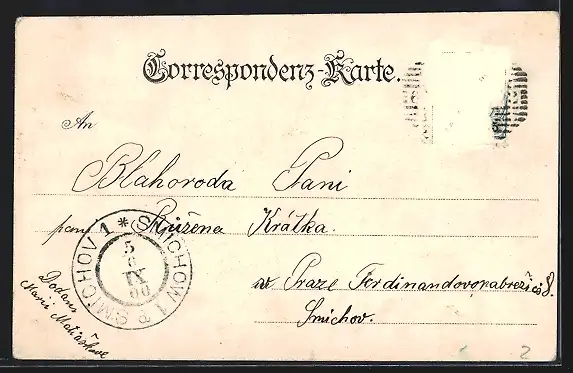 Correspondenz-Karte.
An
Blahoroda Pani
paní Růžena Krátka.
w Praze Ferdinandovonabreží čs 8.
Smichov.
SMICHOV 1 * SMICHOV 1
5
6
IX
00
Dodana
Marii Matiaškove
2